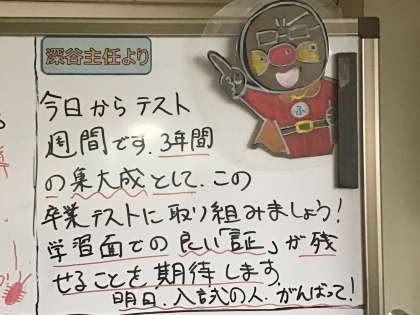 深谷主任より
今日からテスト
週間です.3年間
の集大成として.この
卒業テストに取り組みましょう!
学習面での良い「証」が残
せることを期待します.
明日.入試の人.がんばって!
ふ